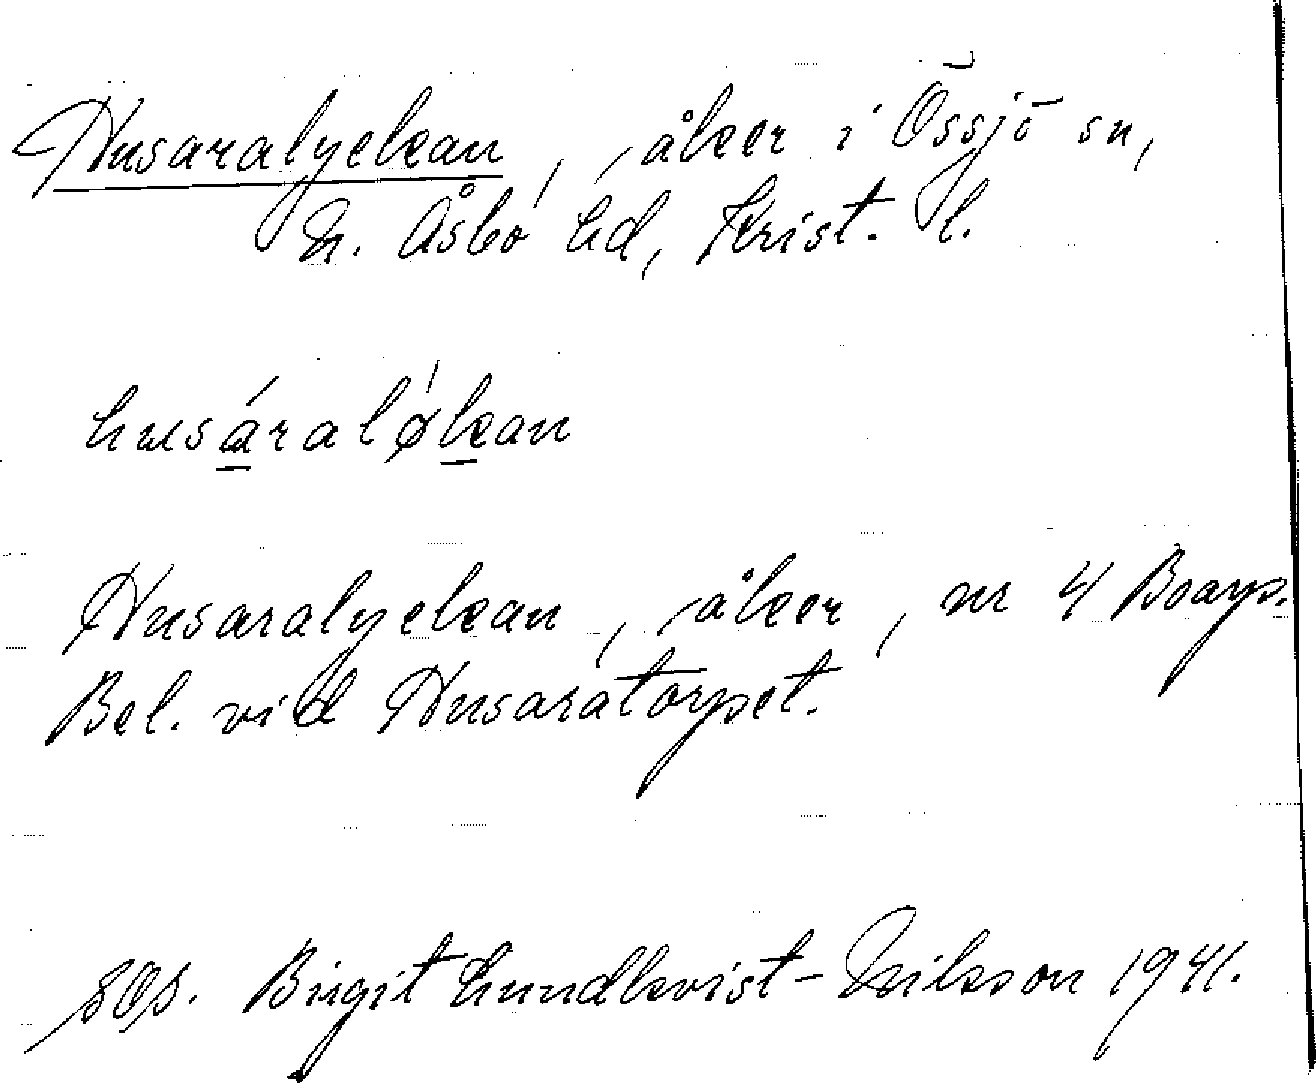 Husaralyckan, åker i Össjö sn,
N. Åsbo hd, Krist. l.
husáraløkan
Husaralyckan, åker, nr 4 Boarp.
Bel. vid Husaratorpet.
Birgit Lundkvist-Nilsson 1941.